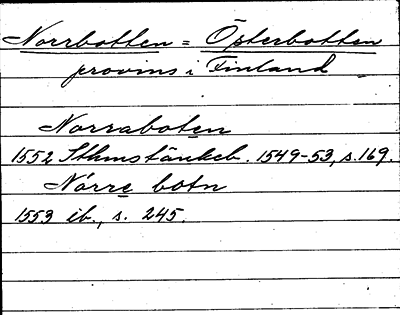 Norrbotten = Österbotten
provins i Finland
Norraboten
1552 Sthmstänkeb. 1549-53, s. 169.
Nórre botn
1553 ib., s. 245.